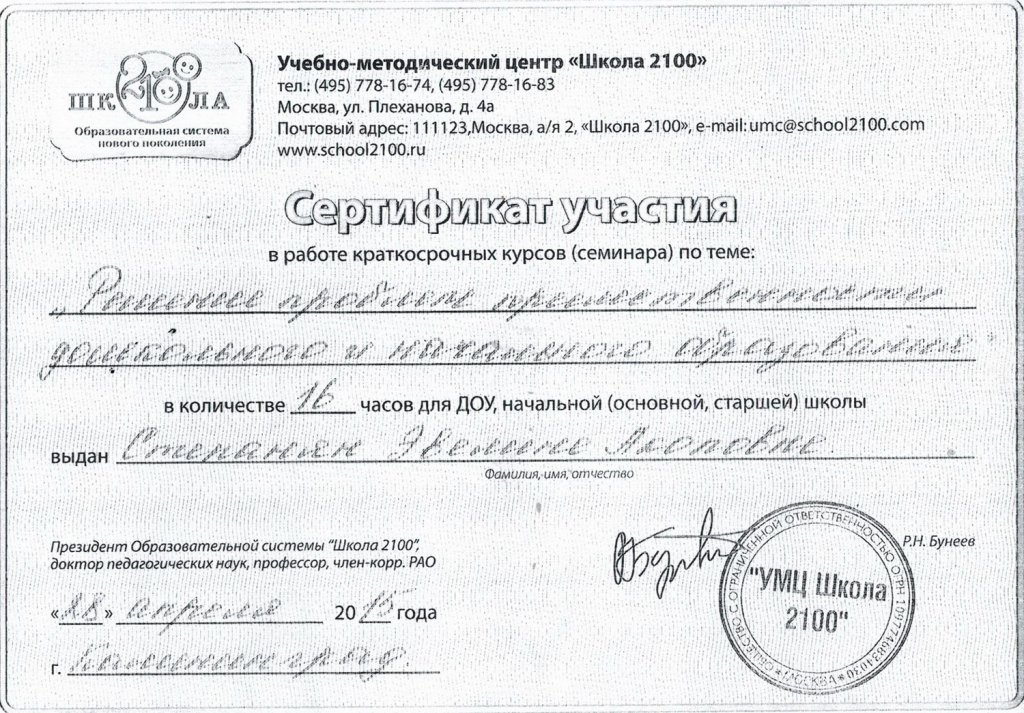 ШК 2100 ЛА
Образовательная система
нового поколения
Учебно-методический центр «Школа 2100»
тел.: (495) 778-16-74, (495) 778-16-83
Москва, ул. Плеханова, д. 4а
Почтовый адрес: 111123,Москва, а/я 2, «Школа 2100», e-mail: umc@school2100.com
www.school2100.ru
Сертификат участия
в работе краткосрочных курсов (семинара) по теме:
„Решение проблем преемственности
дошкольного и начального образования"
в количестве 16 часов для ДОУ, начальной (основной, старшей) школы
выдан Степанян Эвелине Акоповне
Фамилия, имя, отчество
Президент Образовательной системы "Школа 2100",
доктор педагогических наук, профессор, член-корр. РАО
Р.Н. Бунеев
«28» апреля 2015 года
г. Калининград.
ОБЩЕСТВО С ОГРАНИЧЕННОЙ ОТВЕТСТВЕННОСТЬЮ ОГРН
* МОСКВА *
"УМЦ Школа
2100"